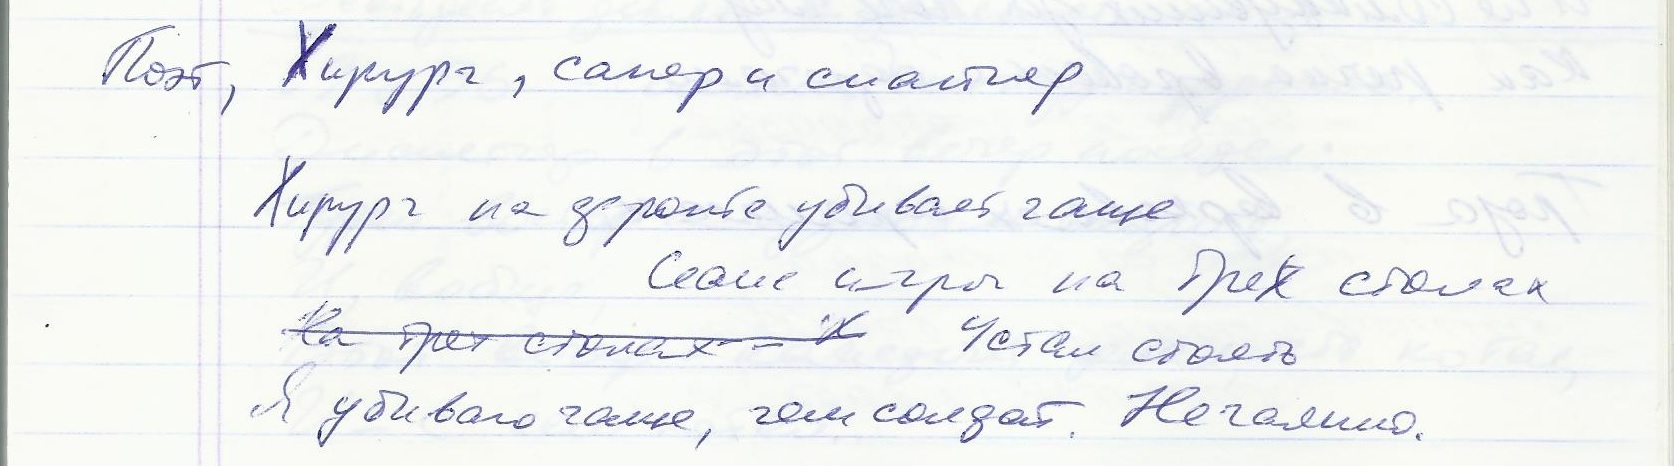 Поэт, Хирург, сапер и снайпер
Хирург на фронте убивает чаще
Сеанс игры на трех столах
На трех столах - Х Устал стоять
Я убиваю чаще, чем солдат. Нечаянно.